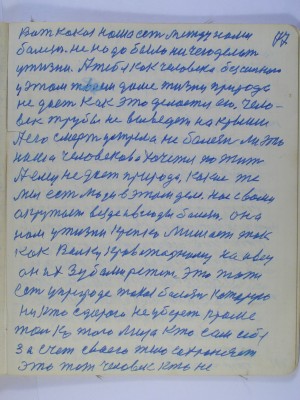 Вот какая наша есть между нами
болезнь. не надо было ничего делать
у жизни. А тебя как человека бессильного
у этом твоем деле жизни природа
не дает как это делается ею. Чело-
век трубы не выведет на крыши
Аего смерть догнала не болеть ли это
наша человекова хочется то жить
Аему не дает природа, какие же
мы есть люди в этом деле, нас своими
окрутили везде и всюду болезнь, она
нам у жизни крепко мешает так
как Волку кровожадному на овцу
он их зубами режет это тоже
есть у природе такая болезнь которую
ни кто с дороги не уберет кроме
только того лица кто сам себя
за счет своего тела сохраняет
это тот человек кто не